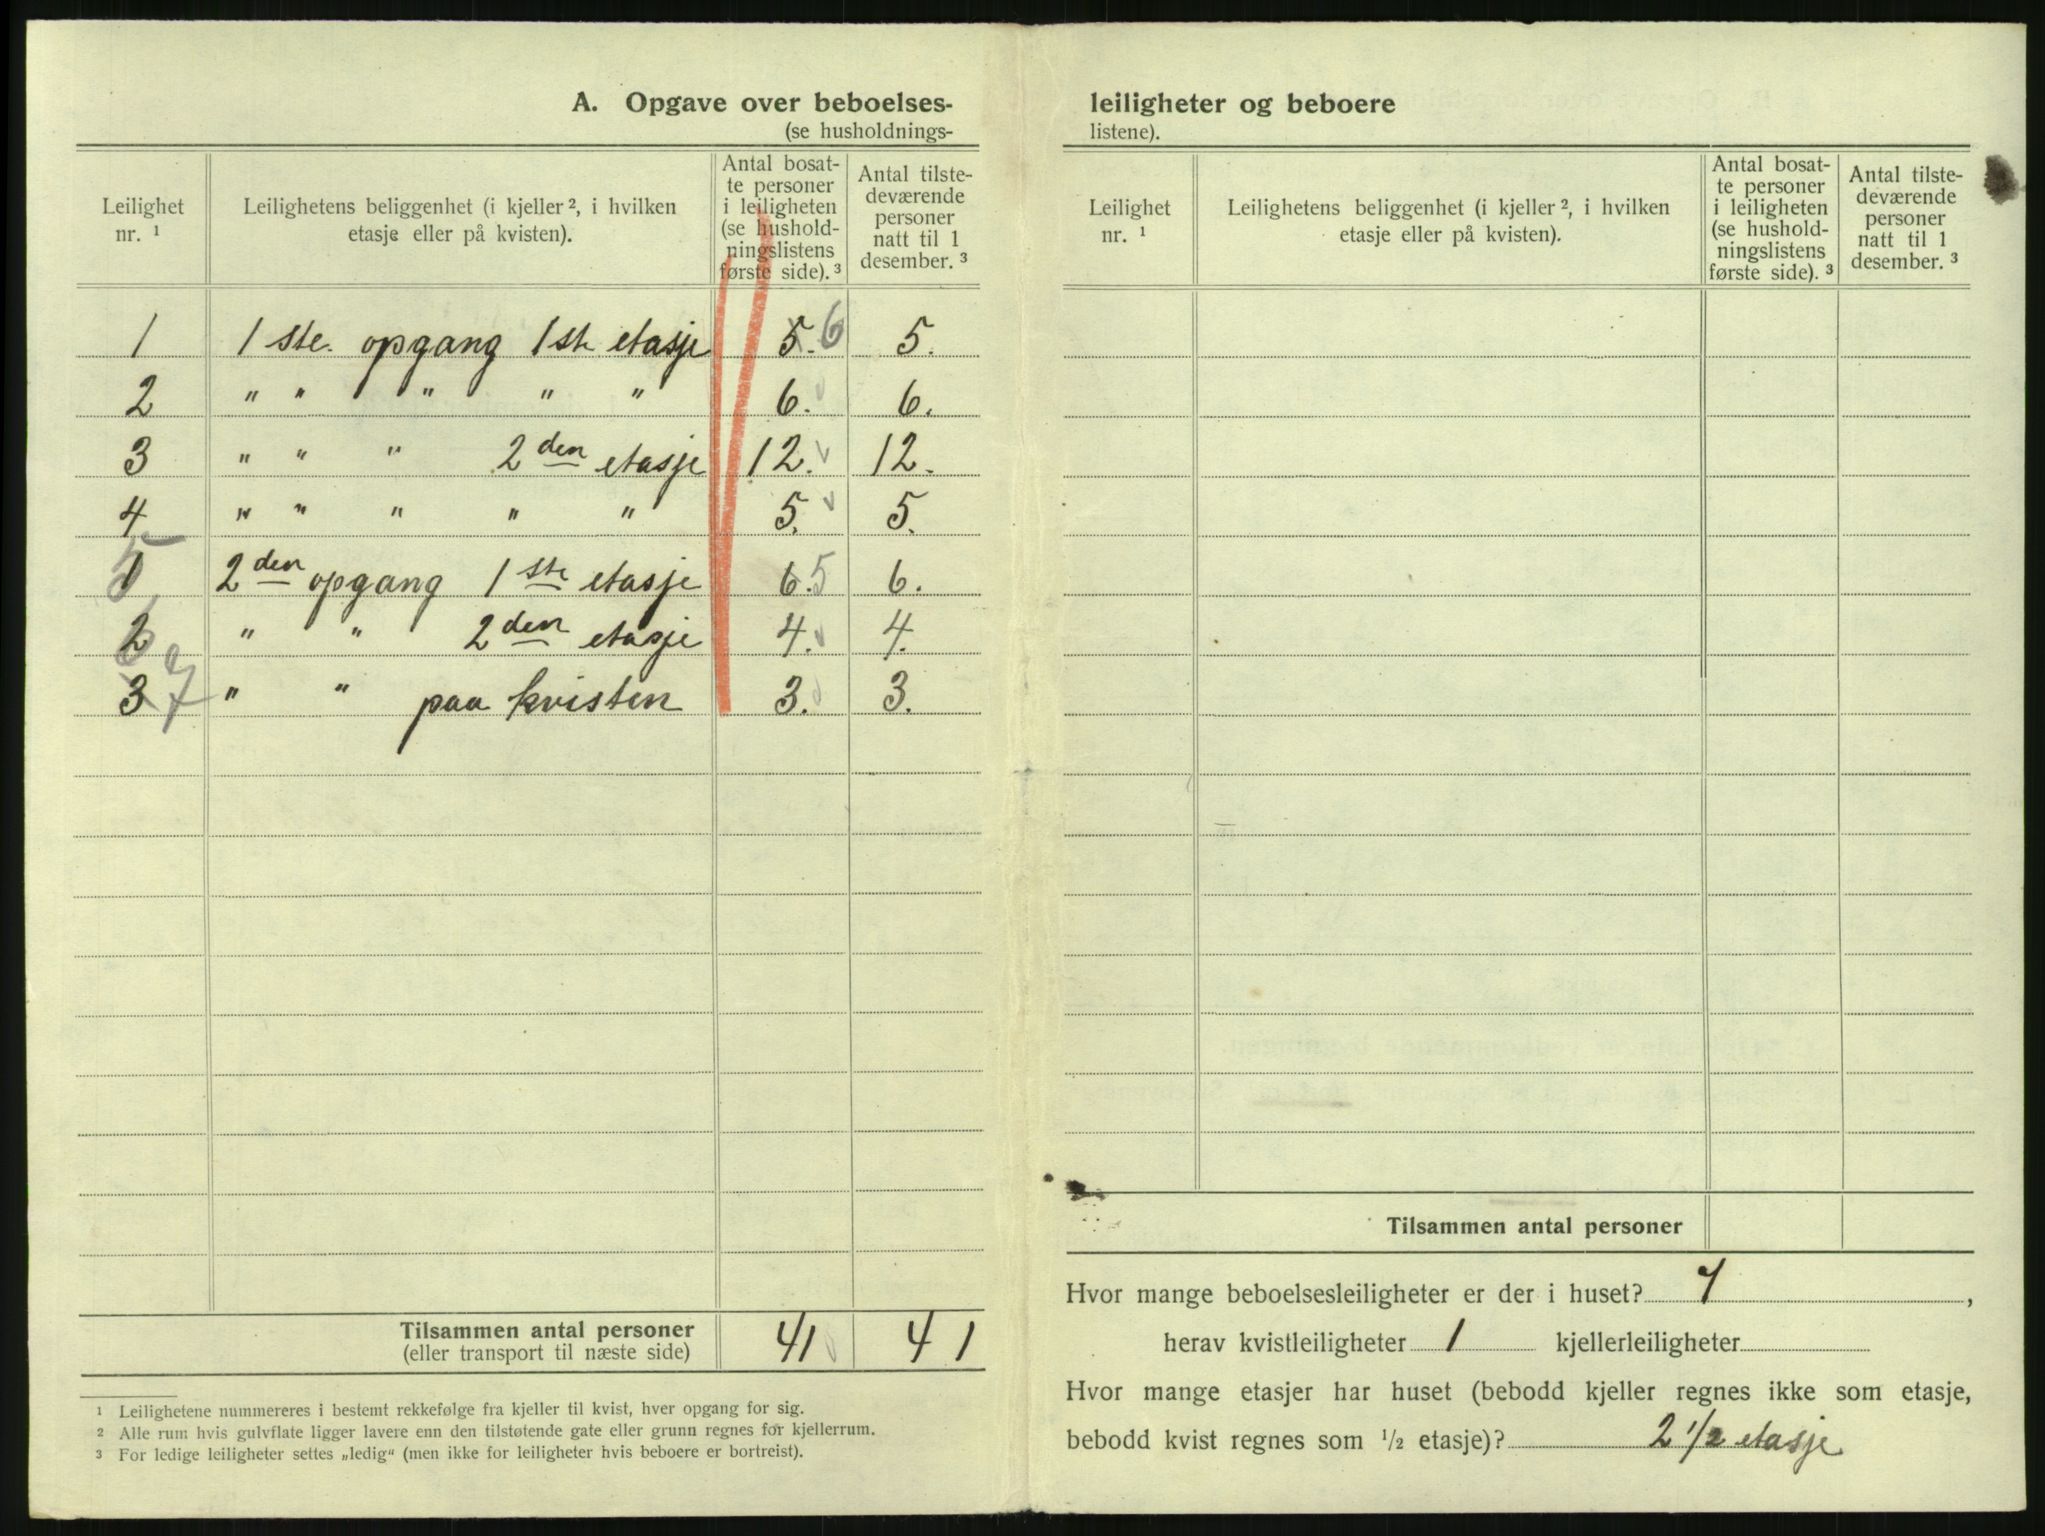 A. Opgave over beboelses-
(se husholdnings-
Leilighet nr. ¹
Leilighetens beliggenhet (i kjeller ², i hvilken etasje eller på kvisten).
Antal bosat-
te personer
i leiligheten
(se hushold-
ningslistens
første side). ³
Antal tilste-
deværende
personer
natt til 1
desember. ³
1 1 ste. opgang 1ste etasje 5. 6 5.
2 " " " " " 6. v 6.
3 " " " 2den etasje 12. v 12.
4 " " " " " 5. v 5.
1 5 2den opgang 1ste etasje 6. 5 6.
2 6 " " 2den etasje 4. v 4.
3 7 " " paa kvisten 3. v 3.
Tilsammen antal personer 41 v 41
(eller transport til næste side)
¹ Leilighetene nummereres i bestemt rekkefølge fra kjeller til kvist, hver opgang for sig.
² Alle rum hvis gulvflate ligger lavere enn den tilstøtende gate eller grunn regnes for kjellerrum.
³ For ledige leiligheter settes „ledig“ (men ikke for leiligheter hvis beboere er bortreist).
leiligheter og beboere
listene).
Leilighet nr. ¹
Leilighetens beliggenhet (i kjeller ², i hvilken etasje eller på kvisten).
Antal bosat-
te personer
i leiligheten
(se hushold-
ningslistens
første side). ³
Antal tilste-
deværende
personer
natt til 1
desember. ³
Tilsammen antal personer
Hvor mange beboelsesleiligheter er der i huset? 7,
herav kvistleiligheter 1 kjellerleiligheter
Hvor mange etasjer har huset (bebodd kjeller regnes ikke som etasje,
bebodd kvist regnes som ½ etasje)? 2 ½ etasje